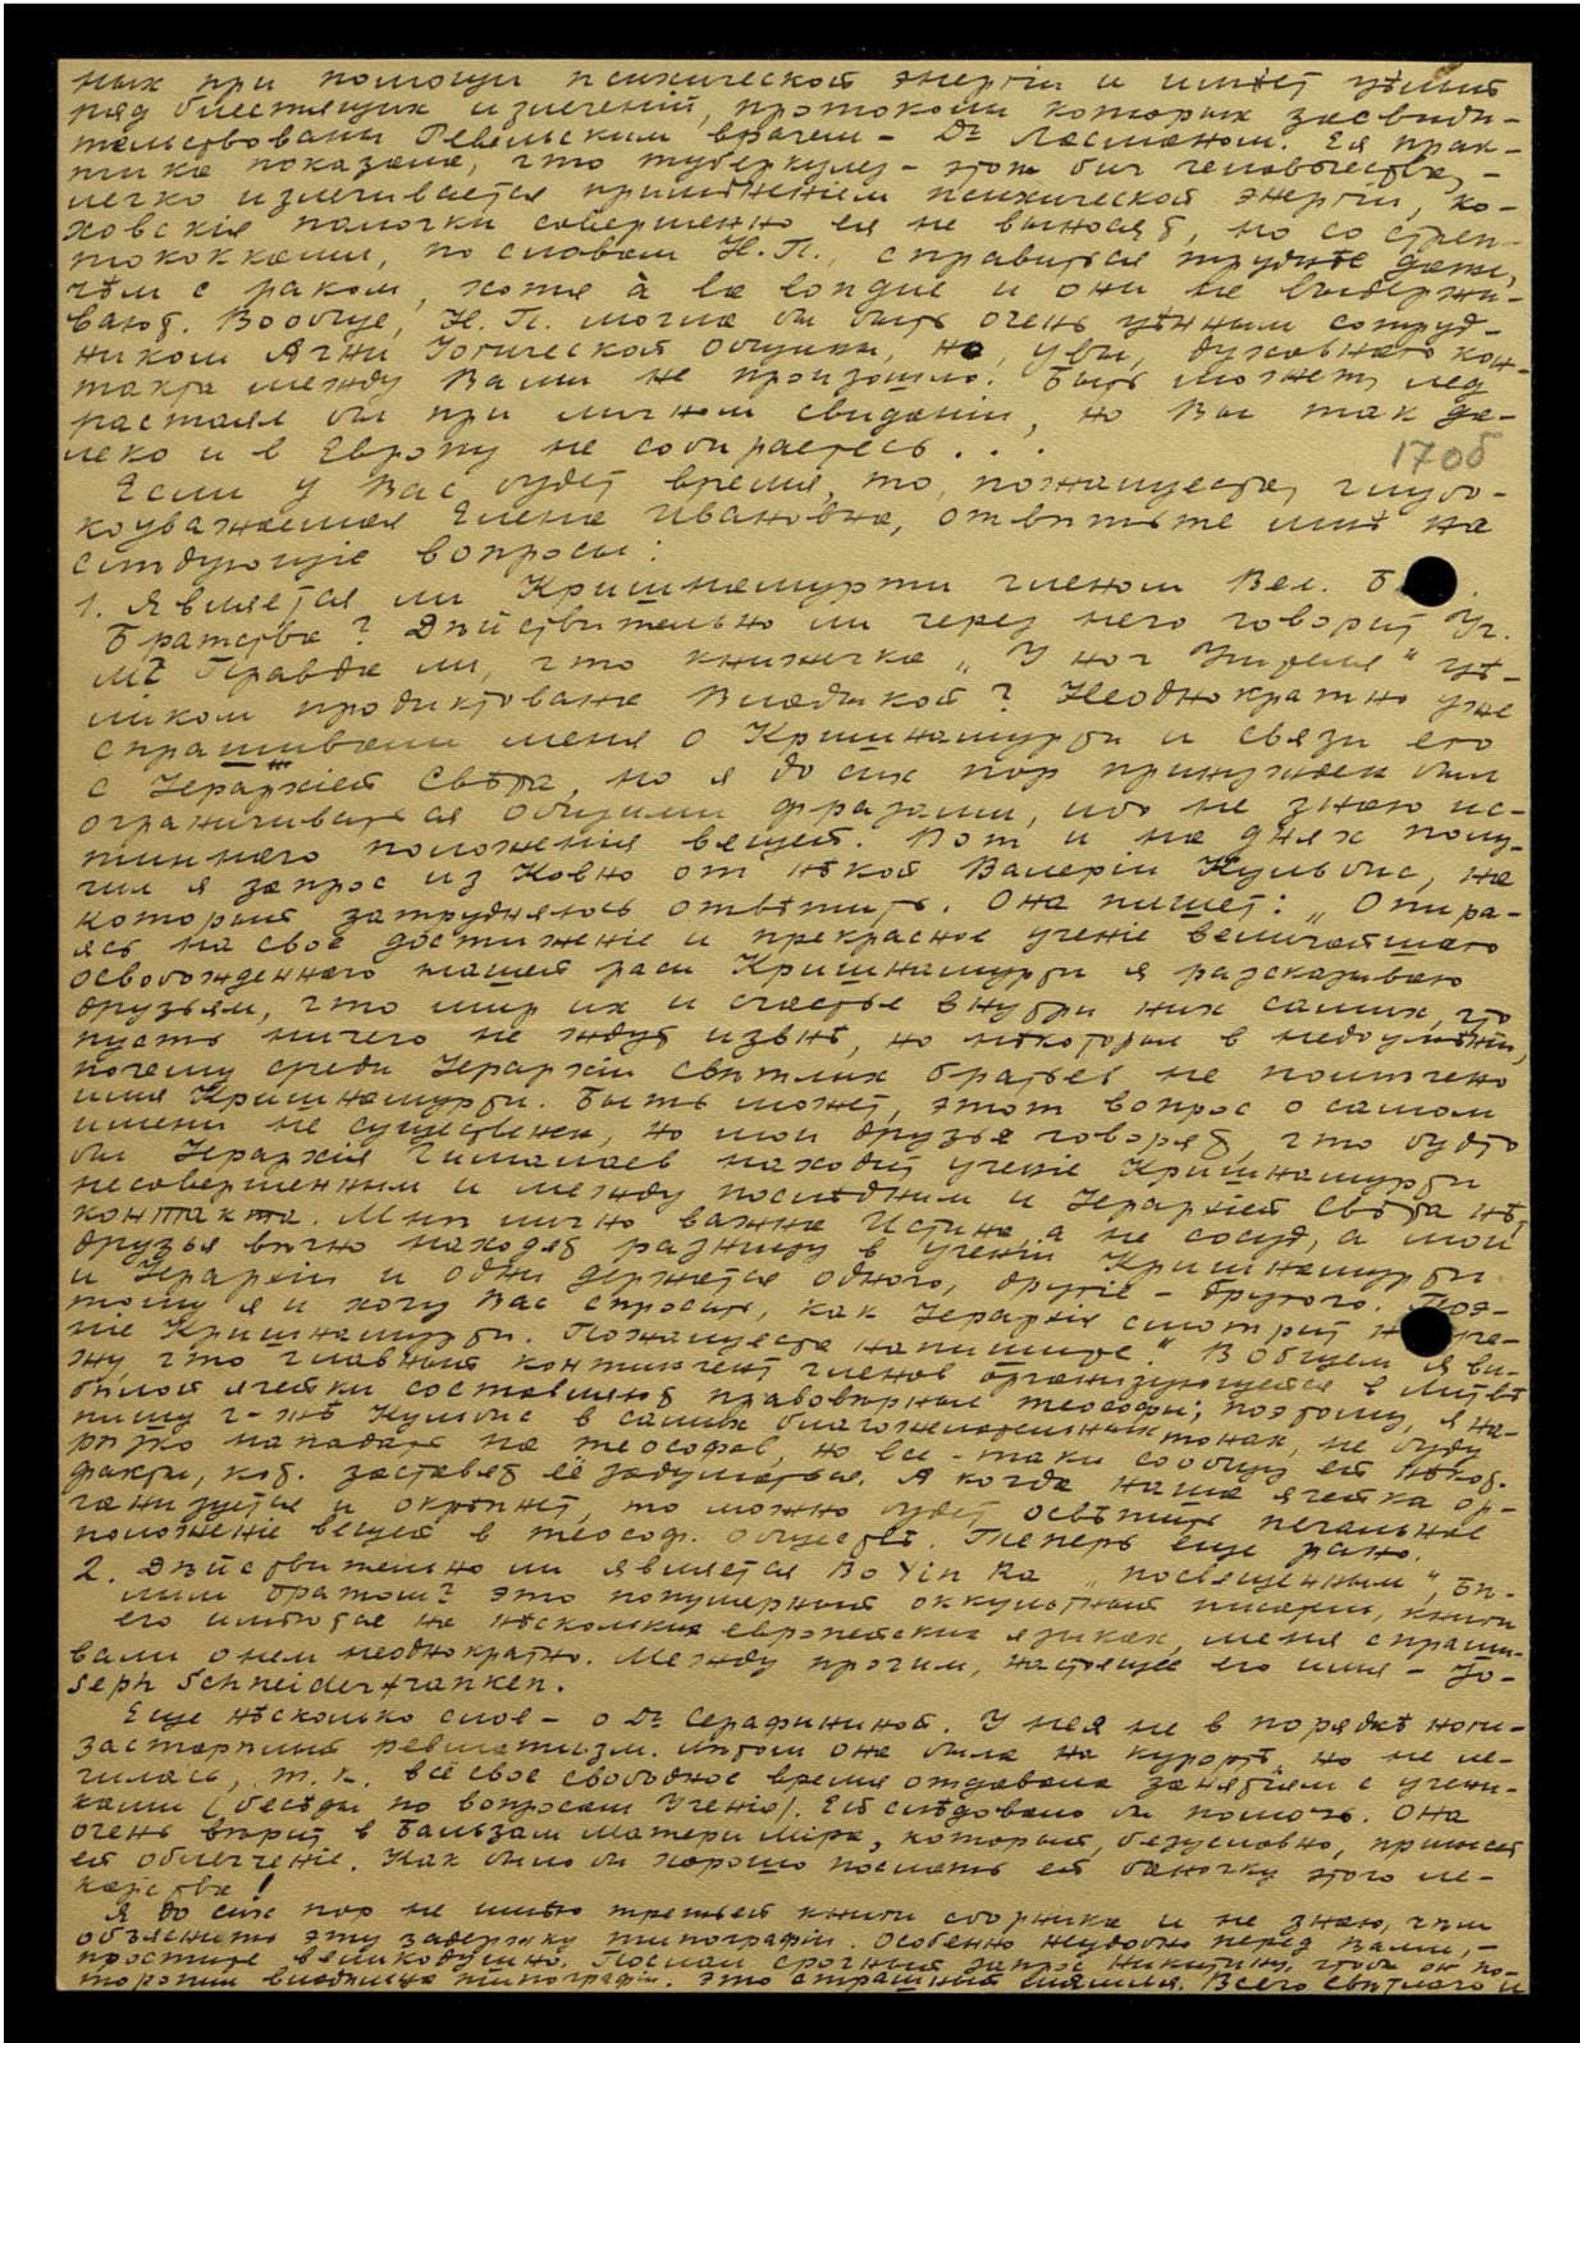 ных при помощи психической энергiи и имѣет цѣлый
ряд блестящих излеченiй, протоколы которых засвиде-
тельствованы Ревельским врачем – Dr Ласманом. Ея прак-
тика показала, что туберкулез – этот бич человѣчества, –
легко излечивается примѣненiем психической энергiи, ко-
ховскiя палочки совершенно ея не выносят, но со стреп-
тококками, по словам Н.П., справиться труднѣе даже,
чѣм с раком, хотя à la longue и они не выдержи-
вают. Вообще, Н.П. могла бы быть очень цѣнным сотруд-
ником Агни Iогической общины, но, увы, духовнаго кон-
такта между Вами не произошло. Быть может, лед
растаял бы при личном свиданiи, но Вы так да-
леко и в Европу не собираетесь . . .
170б
Если у Вас будет время, то, пожалуйста, глубо-
коуважаемая Елена Ивановна, отвѣтьте мнѣ на
слѣдующiе вопросы:
1. Является ли Кришнамурти членом Вел. Б
Братства? Дѣйствительно ли через него говорит Уч.
М? Правда ли, что книжечка „У ног Учителя" цѣ-
ликом продиктована Владыкой? Неоднократно уже
спрашивали меня о Кришнамурти и связи его
с Iерархiей Свѣта, но я до сих пор принужден был
ограничиваться общими фразами, ибо не знаю ис-
тиннаго положенiя вещей. Вот и на днях полу-
чил я запрос из Ковно от нѣкой Валерiи Кульбис, на
который затрудняюсь отвѣтить. Она пишет: „Опира-
ясь на свое достиженiе и прекрасное ученiе величайшаго
освобожденнаго нашей расы Кришнамурти я разсказываю
друзьям, что мир их и счастье внутри них самих, что
пусть ничего не ждут извнѣ, но нѣкоторые в недоумѣнiи,
почему среди Iерархiи свѣтлых братьев не помѣчено
имя Кришнамурти. Быть может, этот вопрос о самом
имени не существенен, но мои друзья говорят, что будто
бы Iерархiя Гималаев находит ученiе Кришнамурти
несовершенным и между послѣдним и Iерархiей Свѣта нѣт
контакта. Мнѣ лично важна Истина, а не сосуд, а мои
друзья вѣчно находят разницу в ученiи Кришнамурти
и Iерархiи и одни держатся одного, другiе – другого. Поэ-
тому я и хочу Вас спросить, как Iерархiя смотрит н уче-
нiе Кришнамурти. Пожалуйста напишите." В общем я ви-
жу, что главный контингент членов организующейся в Литвѣ
бѣлой ячейки составляют правовѣрные теософы; поэтому, я на-
пишу г-жѣ Кульбис в самых благожелательных тонах, не буду
рѣзко нападать на теософов, но все-таки сообщу ей нѣкот.
факты, кот. заставят её задуматься. А когда наша ячейка ор-
ганизуется и окрѣпнет, то можно будет освѣтить печальное
положенiе вещей в теософ. обществѣ. Теперь еще рано.
2. Дѣйствительно ли является Bo Yin Ra „посвященным", Бѣ-
лым братом? Это популярный оккультный писатель, книги
его имѣются на нѣскольких европейских языках, меня спраши-
вали о нем неоднократно. Между прочим, настоящее его имя – Jo-
seph Schneiderfranken.
Еще нѣсколько слов – о Dr Серафининой. У нея не в порядкѣ ноги –
застарѣлый ревматизм. Лѣтом она была на курортѣ, но не ле-
чилась, т. к. всё свое свободное время отдавала занятiям с учени-
ками (бесѣды по вопросам Ученiя). Ей слѣдовало бы помочь. Она
очень вѣрит в Бальзам Матери Мiра, который, безусловно, принесет
ей облегченiе. Как было бы хорошо послать ей баночку этого ле-
карства!
Я до сих пор не имѣю третьей книги сборника и не знаю, чѣм
объяснить эту задержку типографiи. Особенно неудобно перед Вами, –
простите великодушно. Послал срочный запрос Никитину, чтобы он по-
торопил владѣльца типографiи. Это страшный Всего свѣтлаго и